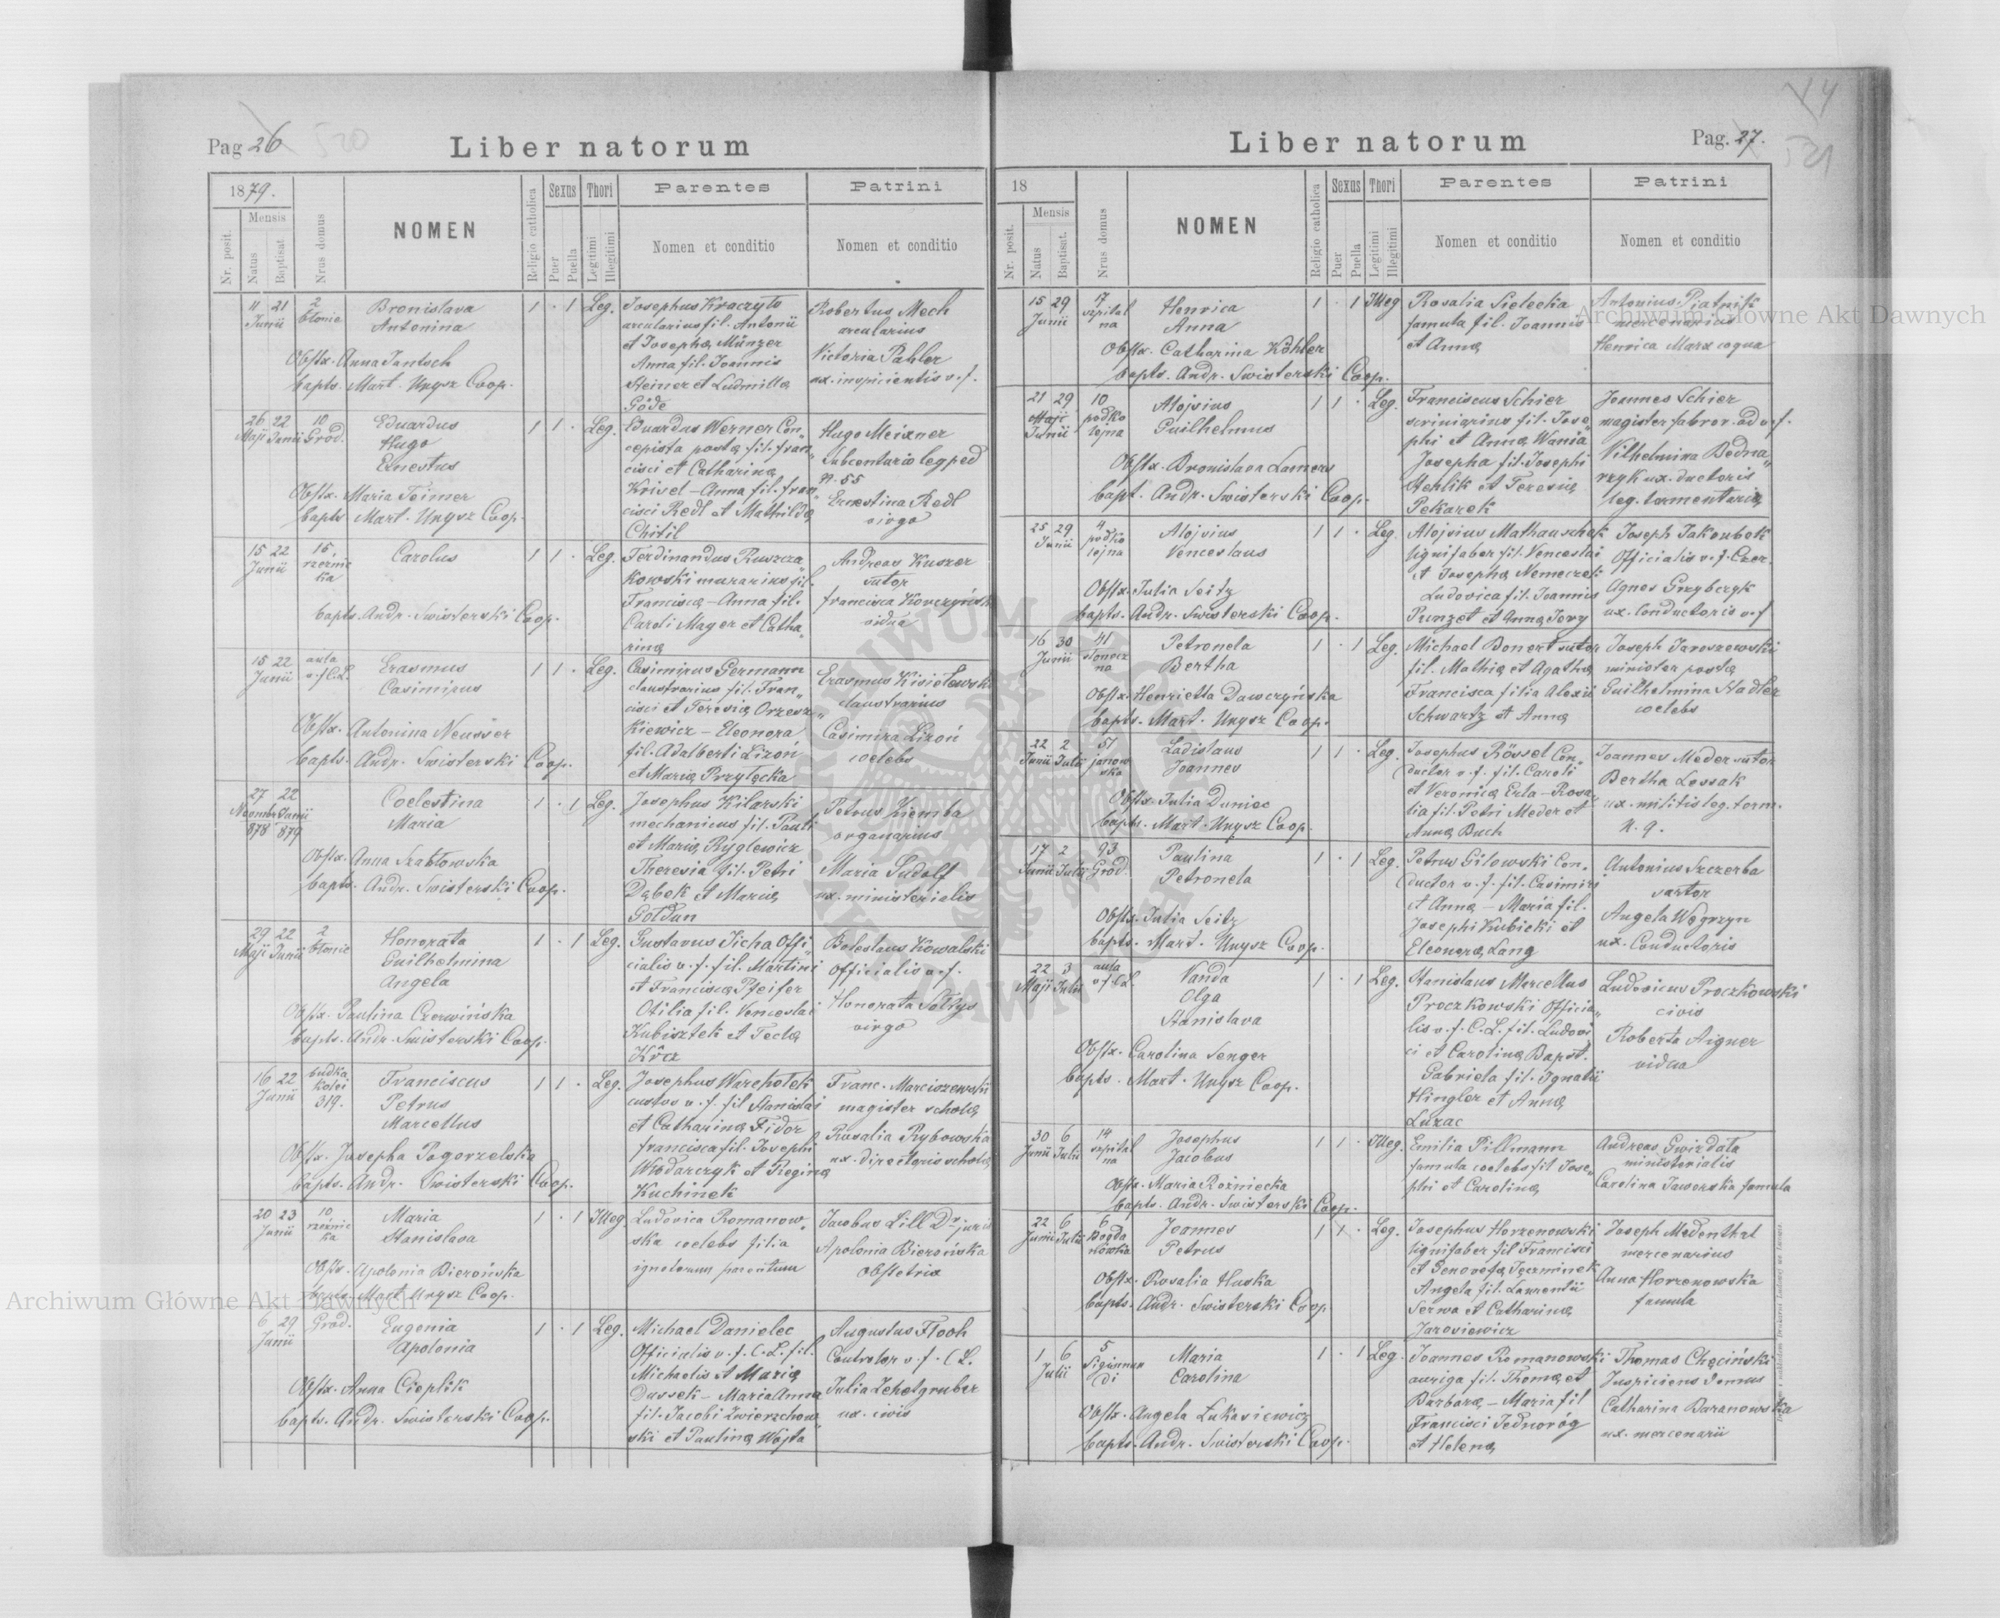 Pag 26
520
Liber natorum
1879.
Mensis
Nr. posit.
Natus
Baptisat.
Nrus domus
NOMEN
Religio catholica
Sexus
Puer
Puella
Thori
Legitimi
Illegitimi
Parentes
Nomen et conditio
Patrini
Nomen et conditio
11 21
Junii
2
błonie
Bronislava
Antonina
1 . 1 Leg.
Obstx. Anna Jantsch
bapts. Mart. Unysz Coop.
Josephus Kraczyło
arcularius fil. Antonii
et Josephą Münzer
Anna fil. Joannis
Steiner et Ludmillą
Göde
Robertus Mech
arcularius
Victoria Pahler
ux. inspicientis v. f.
26 22
Maji Junii
10
Grod.
Eduardus
Hugo
Ernestus
1 1 . Leg.
Obstx. Maria Teimer
bapts Mart. Unysz Coop.
Eduardus Werner Con„
cepista postą fil. Fran„
cisci et Catharina
Krivel - Anna fil. Fran„
cisci Redl et Mathildą
Chitil
Hugo Meixner
subcenturio leg ped
N. 55
Ernestina Redl
virgo
15 22
Junii
15,
rzeznic
ka
Carolus
1 1 . Leg.
bapts Andr. Swisterski Coop.
Ferdinandus Ruszcza„
kowski murarius fil.
Francisca - Anna fil.
Caroli Mager et Catha„
riną
Andreas Kuszer
sutor
Francisca Korczyńsk
vidua
15 22
Junii
aula
v. f. C.L.
Erasmus
Casimirus
1 1 . Leg.
Obstx. Antonina Neusser
bapts. Andr. Swisterski Coop.
Casimirus Germann
claustrarius fil. Fran„
cisci et Teresią Orzesz„
kiewicz - Eleonora
fil. Adalberti Lizoń
et Marią Przyłęcka
Erasmus Kisielewsk
claustrarius
Casimira Lizoń
coelebs
27 22
Novmbr Junii
878 879
Coelestina
Maria
1 . 1 Leg.
Obstx. Anna Szabłowska
bapts. Andr. Swisterski Coop.
Josephus Kilarski
mechanicus fil. Pauli
et Marią Ryglewicz
Theresia fil. Petri
Dąbek et Marią
Goldun
Petrus Ziemba
organarius
Maria Ludolf
ux. ministerialis
29 22
Maji Junii
2
błonie
Honorata
Guilhelmina
Angela
1 . 1 Leg.
Obstx. Paulina Czerwińska
bapts. Andr. Swisterski Coop.
Gustavus Ticha Offi„
cialis v. f. fil. Martini
et Franciscą Pfeifer
Otilia fil. Venceslai
Kubisztek et Teclą
Boleslaus Kowalski
Officialis v. f.
Honorata Sołtys
virgo
16 22
Junii
budka
kolei
319.
Franciscus
Petrus
Marcellus
1 1 . Leg.
Obstx. Josepha Pogorzelska
bapts. Andr. Swisterski Coop.
Josephus Warchołek
custos v. f. fil Stanislai
et Catharina Fidor
Francisca fil. Josephi
Włodarczyk et Regina
Kuchinek
Franc. Marciszewski
magister scholą
Rosalia Rybowska
ux. directoris scholą
20 23
Junii
10
rzeźnic
ka
Maria
Stanislava
1 . 1 Illeg.
Obstx. Apolonia Bierońska
bapts. Mart Unysz Coop.
Ludovica Romanow„
ska coelebs filia
ignotorum parentum
Jacobus Lill Dr juris
Apolonia Bierońska
obstetrix
6 29
Junii
Grod.
Eugenia
Apolonia
1 . 1 Leg.
Obstx. Anna Cieplik
bapts. Andr. Swisterski Coop.
Michael Danielec
Officialis v. f. C. L. fil.
Michaelis et Marią
Dussek - Maria Anna
fil. Jacobi Zwierzchow„
ski et Pauliną Wojta
Augustus Flooh
Controlor v. f. C L.
Julia Zehetgruber
ux. civis
Liber natorum
Pag. 27.
521
18
Mensis
Nr. posit.
Natus
Baptisat.
Nrus domus
NOMEN
Religio catholica
Sexus
Puer
Puella
Thori
Legitimi
Illegitimi
Parentes
Nomen et conditio
Patrini
Nomen et conditio
15 29
Junii
17
szpital
na
Henrica
Anna
1 . 1 Illeg
Obstx. Catharina Köhler
bapts. Andr. Swisterski Coop.
Rosalia Sielecka
famula fil. Joannis
et Anną
Antonius Piatnik
mercenarius
Henrica Marx coqua
21 29
Maji
Junii
10
podko
lejna
Alojsius
Guilhelmus
1 1 . Leg.
Obstx. Bronislava Lamers
bapt. Andr. Swisterski Coop.
Franciscus Schier
scriniarius fil. Jose„
phi et Anną Wania
Josepha fil. Josephi
Stehlik et Teresią
Pekarek
Joannes Schier
magister fabror. ad v. f.
Vilhelmina Bedna„
rzyk ux. ductoris
leg. tormentarią
25 29
Junii
4
podko
lejna
Alojsius
Venceslaus
1 1 . Leg.
Obstx. Julia Seitz
bapts. Andr. Swisterski Coop.
Alojsius Mathauschek
lignifaber fil. Venceslai
et Josephą Nemeczek
Ludovica fil. Joannis
Punzet et Anną Jery
Joseph Jakoubek
Officialis v. f. Czer.
Agnes Grzybczyk
ux. Conductoris v. f
16 30
Junii
41
słonecz
na
Petronela
Bertha
1 . 1 Leg.
Obstx. Henrietta Dawczyńska
bapts. Mart. Unysz Coop.
Michael Bonert sutor
fil. Mathią et Agathą
Francisca filia Alexii
Schwartz et Anną
Joseph Jaroszewski
minister postą
Guilhelmina Stadler
coelebs
22 2
Junii Julii
51
janow
ska
Ladislaus
Joannes
1 1 . Leg.
Obstx. Julia Duniec
bapts. Mart. Unysz Coop.
Josephus Rössel Con„
ductor v. f. fil. Caroli
et Veronicą Erla - Rosa„
lia fil. Petri Meder et
Anną Buch
Joannes Meder sutor
Bertha Lossak
ux. militis leg. torm.
N. 9.
17 2
Junii Julii
93
Grod.
Paulina
Petronela
1 . 1 Leg.
Obstx. Julia Seitz
bapts. Mart. Unysz Coop.
Petrus Gilowski Con„
ductor v. f. fil. Casimiri
et Anną - Maria fil.
Josephi Kubicki et
Eleonorą Lang
Antonius Szczerba
sartor
Angela Węgrzyn
ux. Conductoris
22 3
Maji Julii
aula
v. f. C.L.
Vanda
Olga
Stanislava
1 . 1 Leg.
Obstx. Carolina Senger
bapts. Mart. Unysz Coop.
Stanislaus Marcellus
Proczkowski Officia„
lis v. f. C. L. fil. Ludovi
ci et Carolina Bapst.
Gabriela fil. Ignatii
Hingler et Anną
Luzac
Ludovicus Proczkowski
civis
Roberta Aigner
vidua
30 6
Junii Julii
14
szpital
na
Josephus
Jacobus
1 1 . Illeg.
Obstx. Maria Rożniecka
bapts. Andr. Swisterski Coop.
Emilia Pillmann
famula coelebs fil Jose„
phi et Carolina
Andreas Gwizdała
ministerialis
Carolina Jaworska famula
22 6
Junii Julii
6
Bogda
nówka
Joannes
Petrus
1 1 . Leg.
Obstx. Rosalia Huska
bapts. Andr. Swisterski Coop
Josephus Horzenowski
lignifaber fil Francisci
et Genovefą Tęczminek
Angela fil. Laurentii
Serwa et Catharina
Jarosiewicz
Joseph Medenthal
mercenarius
Anna Horzenowska
famula
1 6
Julii
5
Sigismun
di
Maria
Carolina
1 . 1 Leg.
Obstx. Angela Łukasiewicz
bapts. Andr. Swisterski Coop.
Joannes Romanowski
auriga fil. Thomą et
Barbarą - Maria fil
Francisci Jednoróg
et Helena
Thomas Chęciński
Inspiciens domus
Catharina Baranowska
ux. mercenarii
Archiwum Główne Akt Dawnych
Archiwum Główne Akt Dawnych